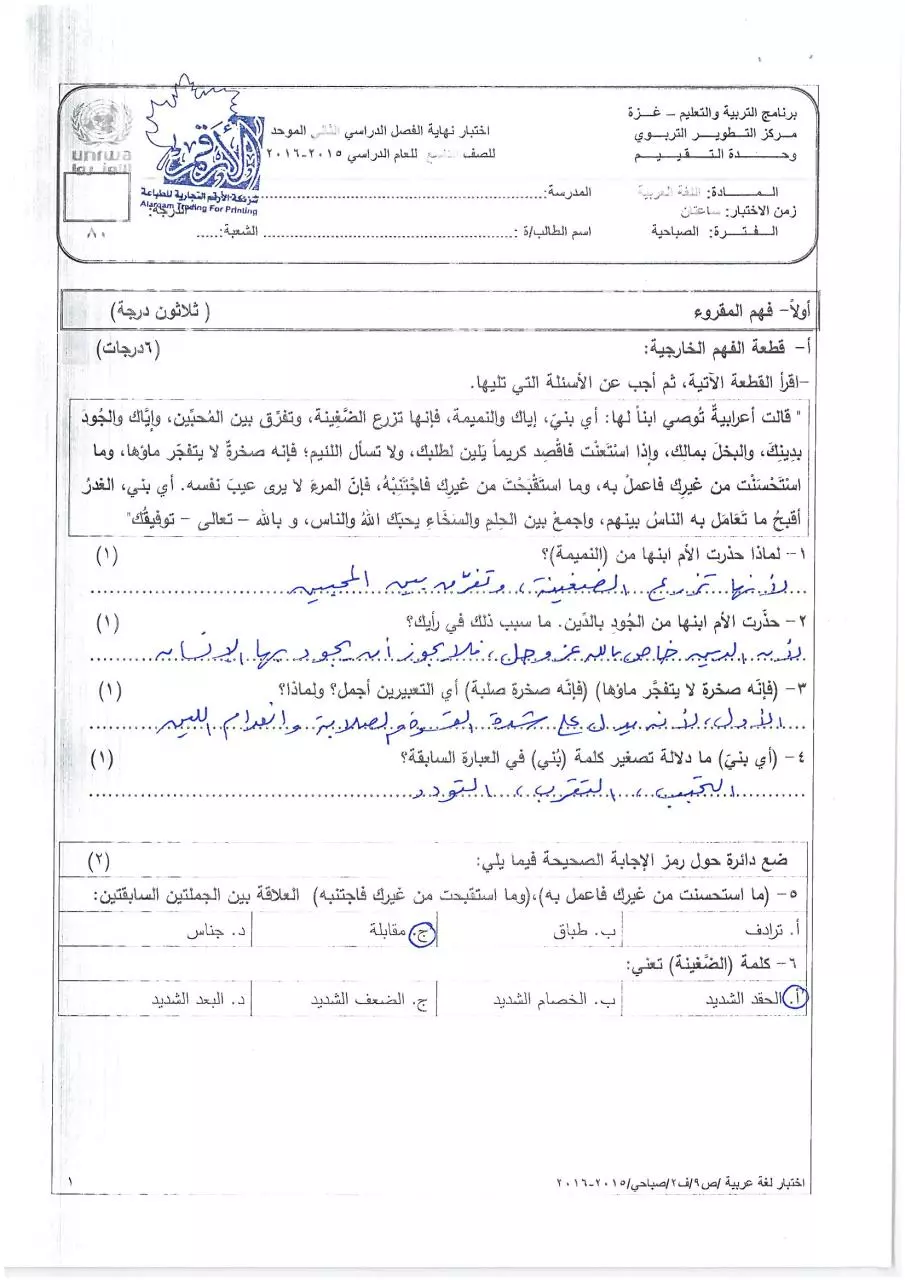 برنامج التربية والتعليم – غزة
مركز التطوير التربوي
وحدة التقييم
اختبار نهاية الفصل الدراسي الثاني الموحد
للصف التاسع للعام الدراسي ٢٠١٥-٢٠١٦
unrwa
الأونروا
الأرقم
شركة الأرقم التجارية للطباعة
Alarqam Trading For Printing
المــادة: اللغة العربية
المدرسة:
زمن الاختبار: ساعتان
الدرجة:
٨٠
الفترة: الصباحية
اسم الطالب/ة :
الشعبة:
أولاً- فهم المقروء
( ثلاثون درجة)
أ- قطعة الفهم الخارجية:
(٦درجات)
-اقرأ القطعة الآتية، ثم أجب عن الأسئلة التي تليها.
" قالت أعرابيةٌ تُوصي ابناً لها: أي بنيَ، إياك والنميمة، فإنها تزرع الضَّغِينة، وتفرّق بين المُحبِّين، وإيَّاك والجُودَ
بدِينِكَ، والبخلَ بمالِك، وإذا اسْتَعَنْت فاقْصِد كريماً يَلين لطلبك، ولا تسأل اللئيم؛ فإنه صخرةٌ لا يتفجّر ماؤها، وما
اسْتَحْسَنْت من غيرِك فاعملْ به، وما استَقْبَحْتَ من غيرِك فاجْتَنبْهُ، فإنّ المرءَ لا يرى عيبَ نفسه. أي بني، الغدرُ
أقبحُ ما تَعَامَل به الناسُ بينهم، واجمعْ بين الحِلمِ والسَخَاءِ يحبّك اللهُ والناس، و بالله – تعالى – توفيقُك"
١- لماذا حذرت الأم ابنها من (النميمة)؟
(١)
لأنها تزرع الضغينة، وتفرّق بين المحبين
٢- حذّرت الأم ابنها من الجُودِ بالدِّين. ما سبب ذلك في رأيك؟
(١)
لأن الدين خاص بالله عز وجل، فلا يجوز أن يجود بها الإنسان
٣- (فإنّه صخرة لا يتفجَّر ماؤها) (فإنّه صخرة صلبة) أي التعبيرين أجمل؟ ولماذا؟
(١)
الأول، لأنه يدل على شدة القسوة والصلابة وانعدام اللين
٤- (أي بنيَ) ما دلالة تصغير كلمة (بُني) في العبارة السابقة؟
(١)
التحبب، التقرب، التودد
ضع دائرة حول رمز الإجابة الصحيحة فيما يلي:
(٢)
٥- (ما استحسنت من غيرك فاعمل به)،(وما استقبحت من غيرك فاجتنبه) العلاقة بين الجملتين السابقتين:
أ. ترادف
ب. طباق
ج. مقابلة
د. جناس
٦- كلمة (الضَّغينة) تعني:
أ. الحقد الشديد
ب. الخصام الشديد
ج. الضعف الشديد
د. البعد الشديد
اختبار لغة عربية /ص٩/ف٢/صباحي/٢٠١٥-٢٠١٦
١